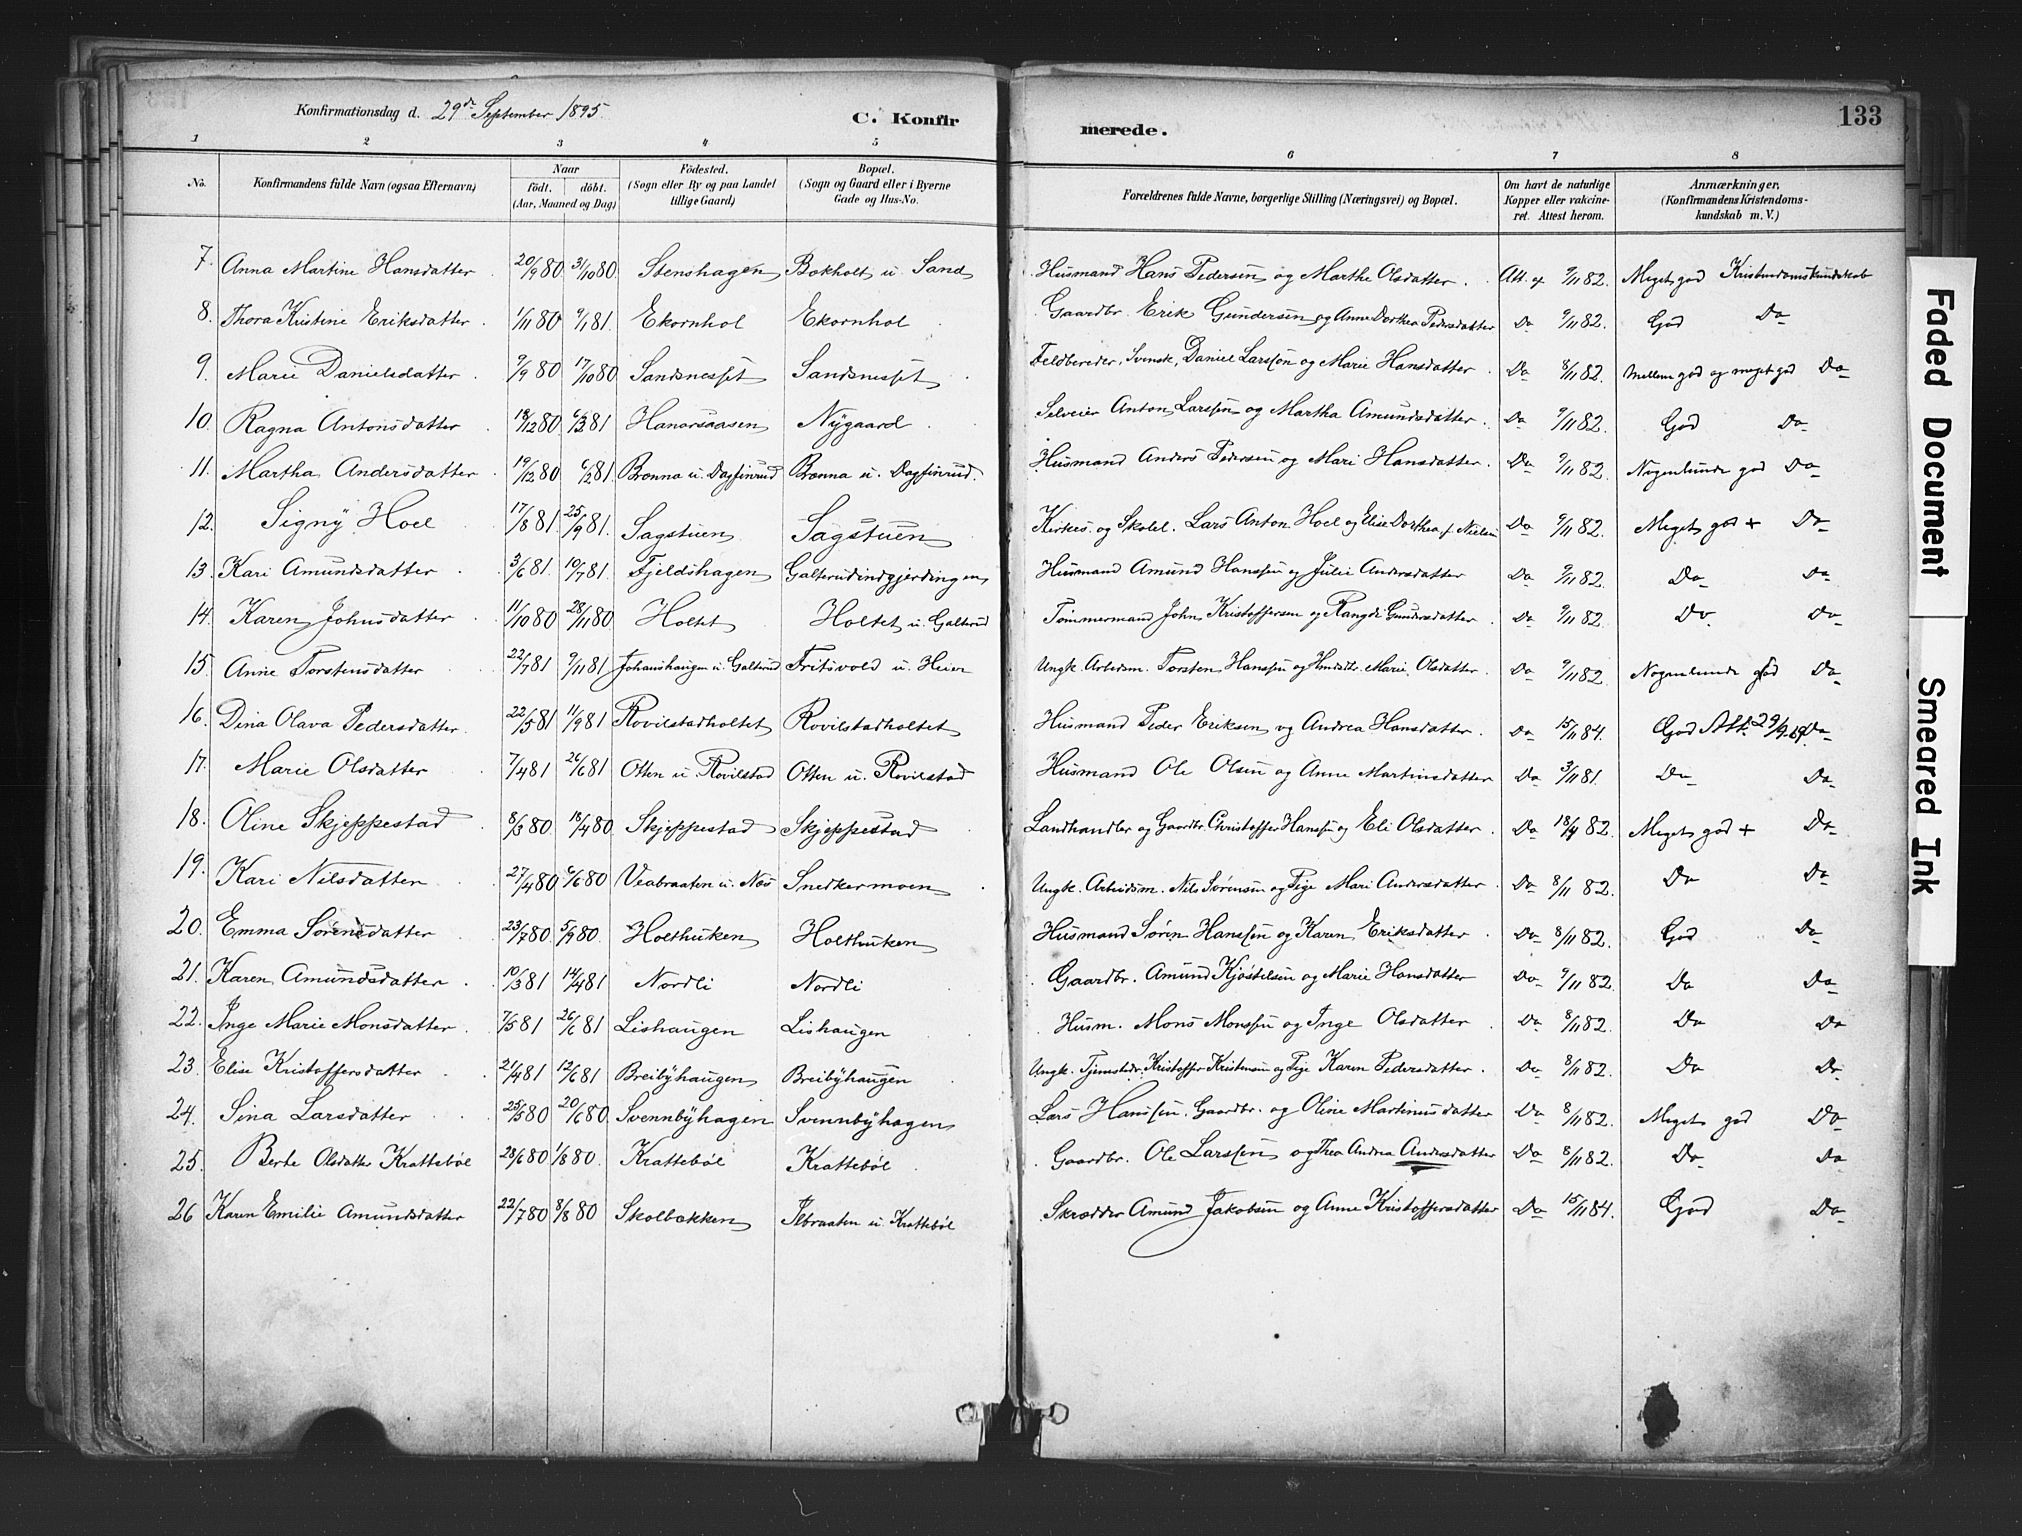 Konfirmationsdag d. 29de September 1895.
C. Konfirmerede.
133
1 2 3 4 5 6 7 8
No. Konfirmandens fulde Navn (ogsaa Efternavn) Naar födt. döbt. (Aar, Maaned og Dag) Födested. (Sogn eller By og paa Landet tillige Gaard) Bopæl. (Sogn og Gaard eller i Byerne Gade og Hus-No. Forældrenes fulde Navne, borgerlige Stilling (Næringsvei) og Bopæl. Om havt de naturlige Kopper eller vakcineret. Attest herom. Anmærkninger. (Konfirmandens Kristendomskundskab m. V.)
7. Anna Martine Hansdatter 20/9 80 31/10 80 Stenshagen Bokholt u. Sand Husmand Hans Pedersen og Marthe Olsdatter. Att. af 9/11 82. Meget god Kristendomskundskab
8. Thora Kristine Eriksdatter 1/11 80 9/1 81. Ekornhol Ekornhol Gaardbr. Erik Gundersen og Anne Dorthea Pedersdatter Do 9/11 82. God Do
9. Marie Danielsdatter 9/9 80 17/10 80 Sandsnesset Sandsnesset Feldbereder, Svensk, Daniel Larsson og Marie Hansdatter Do 8/11 82. Mellem god og meget god Do
10. Ragna Antonsdatter 18/12 80 6/3 81 Hanorsaasen Nygaard Selveier Anton Larssen og Martha Amundsdatter Do 9/11 82. God Do
11. Martha Andersdatter 19/12 80 6/2 81 Brænna u. Dagfinrud Brænna u. Dagfinrud. Husmand Anders Pedersen og Mari Hansdatter. Do 9/11 82. Nogenlunde god Do
12. Signy Hoel 17/8 81. 25/9 81. Sagstuen Sagstuen Kirkes. og Skolel. Lars Anton Hoel og Elise Dorthea f. Nielsen Do 9/11 82. Meget god + Do
13. Kari Amundsdatter 3/6 81. 10/7 81. Fjeldshagen Galterudindgjerdingen Husmand Amund Hanssen og Julie Andersdatter Do 9/11 82. Do Do
14. Karen Johnsdatter 11/10 80 28/11 80 Holtet Holtet u. Galterud Tømmermand John Kristoffersen og Rangdi Gundersdatter Do 9/11 82. Do Do
15. Anne Torstensdatter 22/7 81 9/11 81 Johanshaugen u. Galterud Fritsvold u. Heier Ungk. Arbeidsm. Torsten Hanssen og Marie Olsdatter Do 9/11 82. Nogenlunde god Do
16. Dina Olava Pedersdatter 22/5 81 11/9 81 Rovilstadholtet Rovilstadholtet Husmand Peder Eriksen og Andrea Hansdatter. Do 15/11 84. God Att. 29/9.09. Do
17. Marie Olsdatter 7/4 81 26/6 81 Otten u. Rovilstad Otten u. Rovilstad Husmand Ole Olsen og Anne Martinsdatter Do 3/11 81 Do Do
18. Oline Skjeppestad 8/3 80 18/4 80 Skjeppestad Skjeppestad Landhandler og Gaardbr. Christoffer Hanssen og Eli Olsdatter. Do 18/4 82. Meget god + Do
19. Kari Nilsdatter 27/4 80 6/6 80 Veabraaten u. Næs Snedkermoen Ungk. Arbeidsm. Nils Sørensen og Pige Mari Andersdatter Do 8/11 82. Do Do
20. Emma Sørensdatter 23/7 80 5/9 80. Holthuken Holthuken Husmand Søren Hanssen og Karen Eriksdatter Do 8/11 82. God Do
21. Karen Amundsdatter 10/3 81 14/4 81 Nordli Nordli Gaardbr. Amund Kjøstelsen og Marie Hansdatter Do 9/11 82. Do Do
22. Inge Marie Monsdatter 7/5 81 26/6 81 Lishaugen Lishaugen Husm. Mons Monssen og Inge Olsdatter Do 8/11 82. Do Do
23. Elise Kristoffersdatter 21/4 81 12/6 81 Breibyhaugen Breibyhaugen Ungk. Tjenstedr. Kristoffer Kristensen og Pige Karen Pedersdatter. Do 8/11 82. Do Do
24. Sina Larsdatter 25/5 80 20/6 80 Svennbyhagen Svennbyhagen Lars Hanssen. Gaardbr. og Oline Martinusdatter Do 8/11 82. Meget god Do
25. Berte Olsdatter Krattebøl 28/6 80 1/8 80. Krattebøl Krattebøl Gaardbr. Ole Larssen og Thea Andrea Andersdatter Do 8/11 82. Do Do
26 Karen Emilie Amundsdatter 22/7 80 8/8 80 Skolbækken Jebraaten u. Krattebøl Skrædder Amund Jakobsen og Anne Kristoffersdatter Do 15/11 84. God Do
Faded Document
Smeared Ink